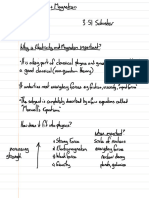 & Magnetism
§ SI Salvador
Why is Electricity and Magnetism important?
• It is a key part of classical physics and
a good classical (non-quantum theory)
• It underlies most everyday forces e.g. friction, viscosity,
• The subject is completely described by a few equations called
"Maxwell's Equations".
How does it fit into physics?
increasing
strength
• Strong force
• Electromagnetism
• Weak force
• Gravity
When important?
Scale of nucleus
everyday forces
nuclear decay
planets, galaxies